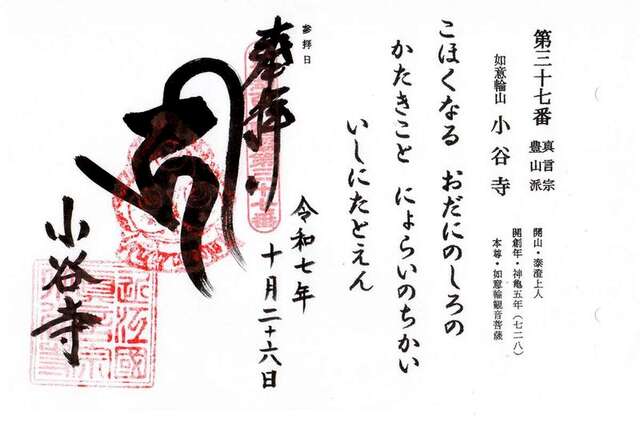 第三十七番 真言宗 豊山派
如意輪山 小谷寺
開山・泰澄上人
開創年・神亀五年(七二八)
本尊・如意輪観音菩薩
こほくなる おだにのしろの
かたきこと にょらいのちかい
いしにたとえん
令和七年 十月二十六日
参拝日
奉拝
小谷寺